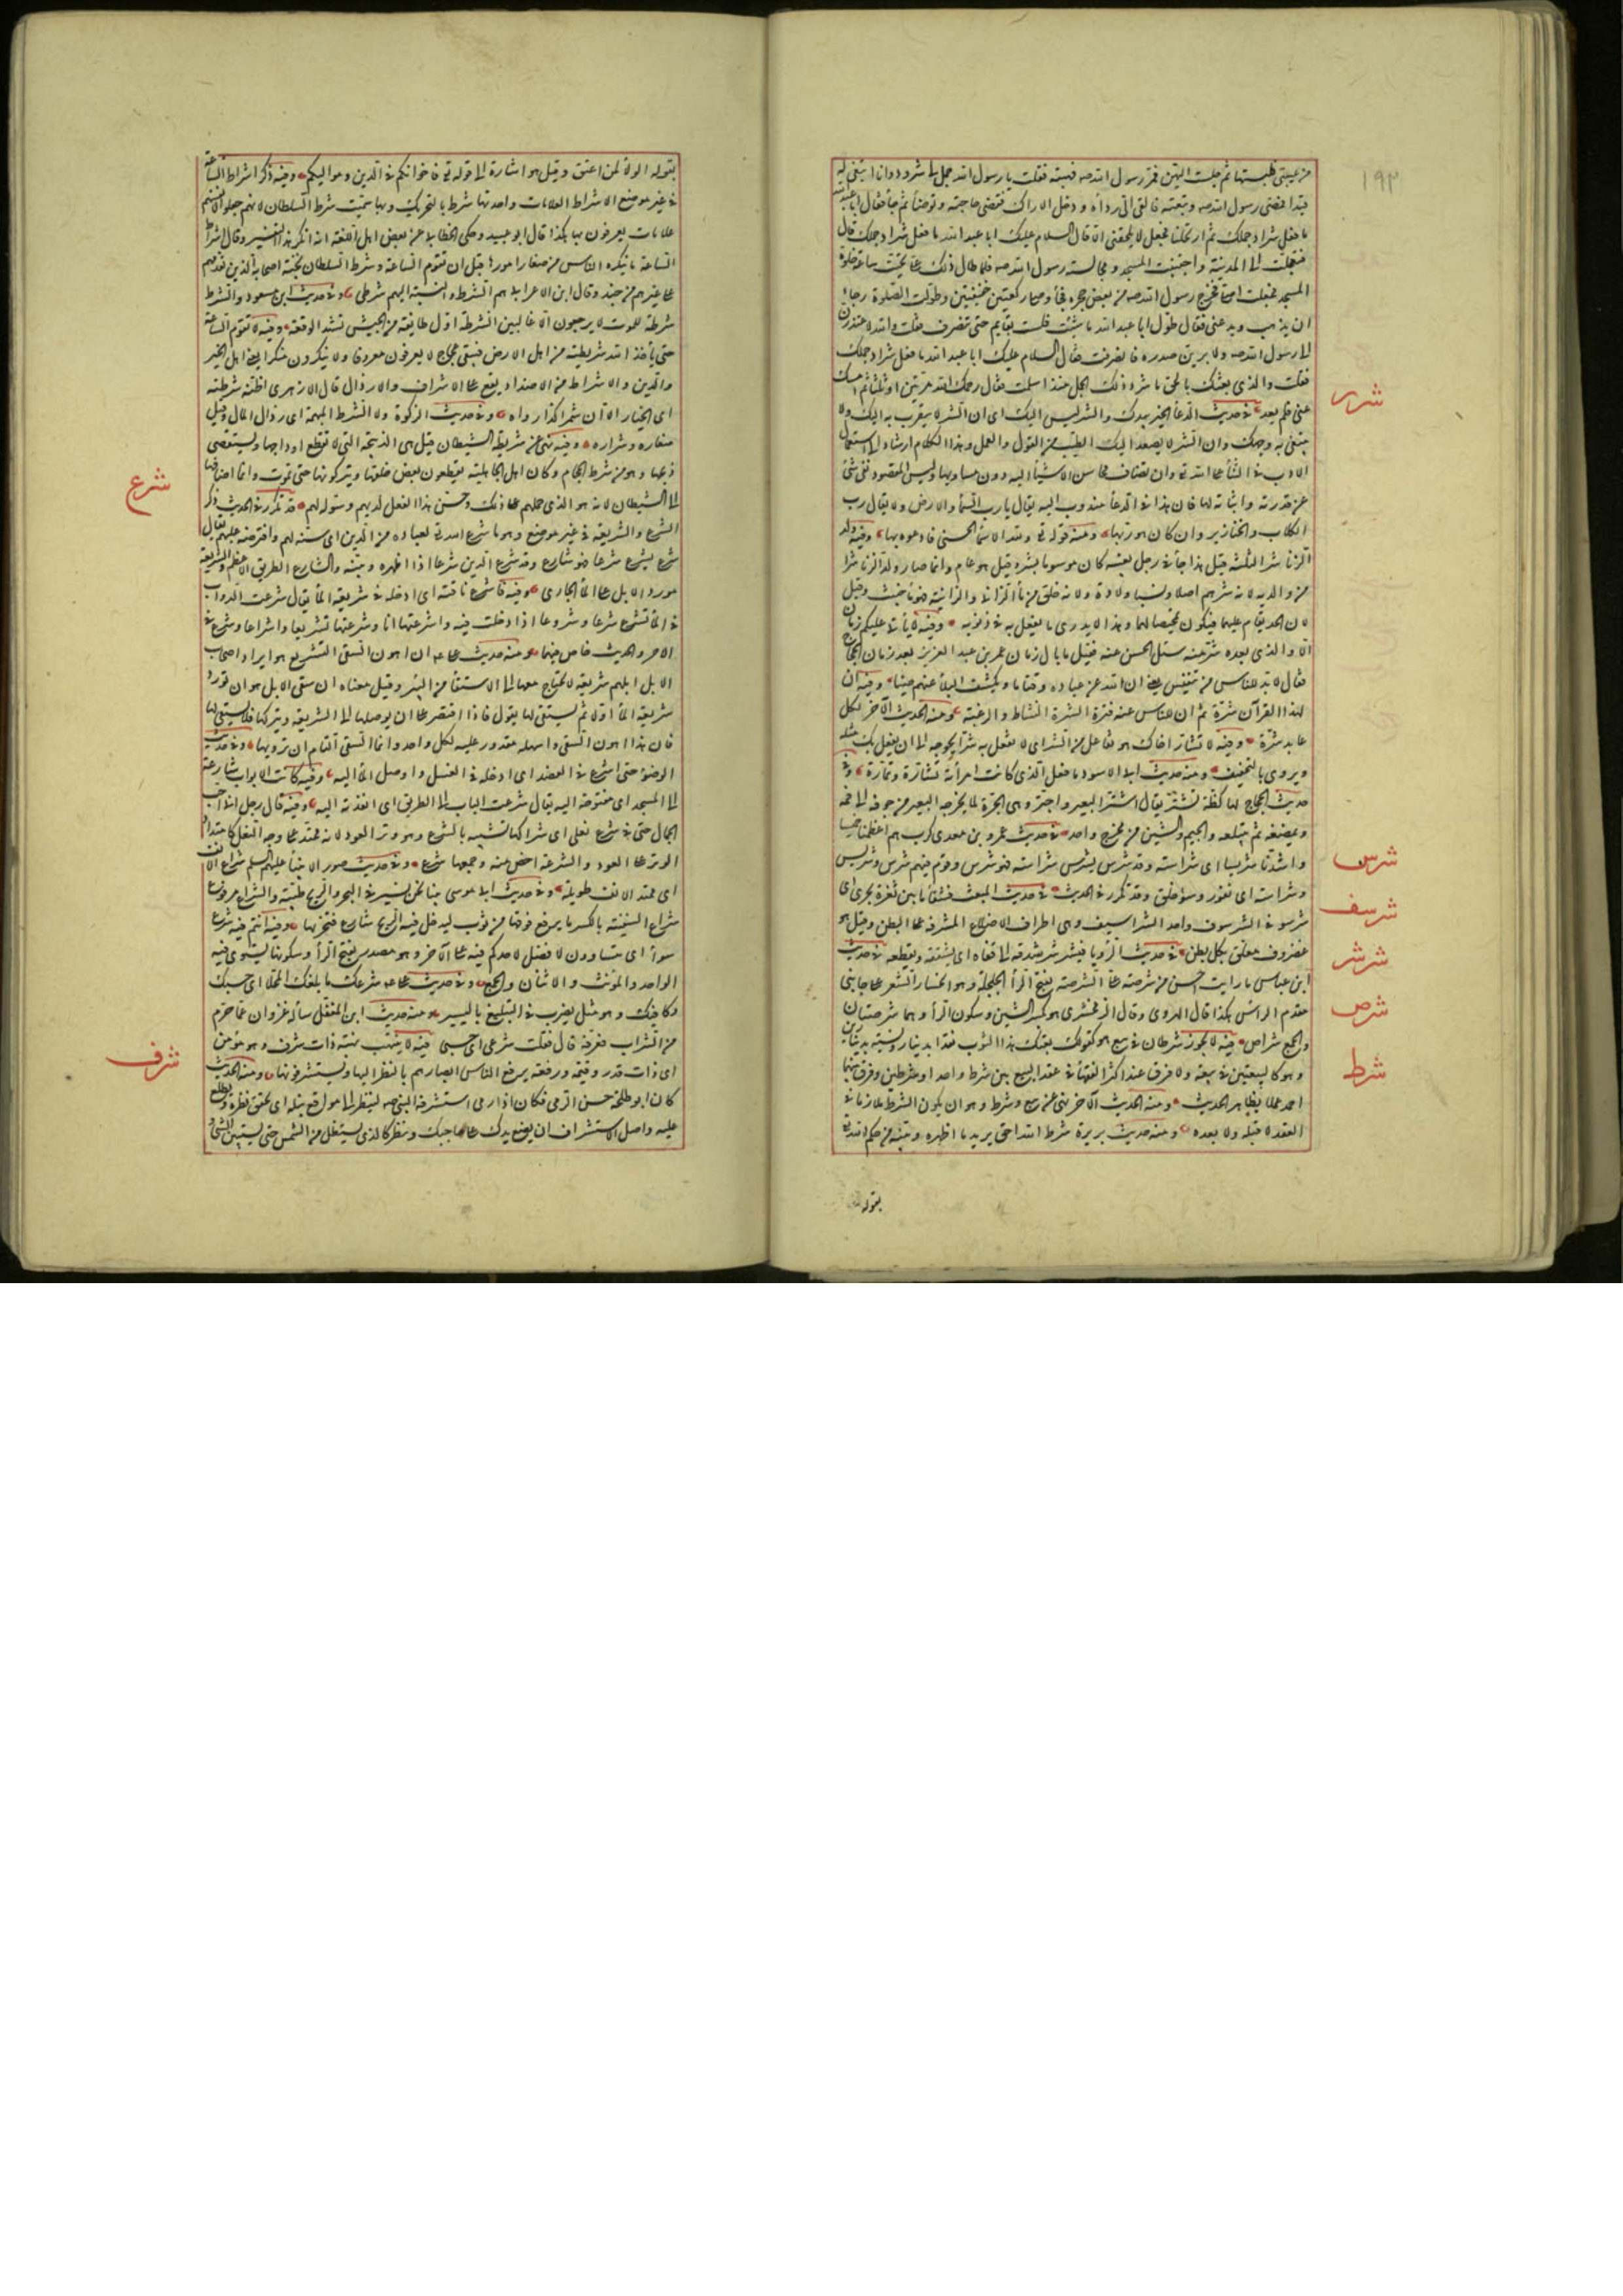 ١٩٣
من عيبتى فلبستها ثم جلست اليهن فمر رسول الله صه فهبته فقلت يا رسول الله جمل لى شرود وانا ابتغى له
قيدا فمضى رسول الله صه وتبعته فالقى الى رداءه ودخل الاراك فقضى حاجته وتوضأ ثم جاء فقال ابا عبد الله
ما فعل شراد جملك ثم ارتحلنا فجعل لا يلحقنى الا قال السلام عليك ابا عبد الله ما فعل شراد جملك قال
فتعجلت الى المدينة واجتنبت المسجد ومجالسة رسول الله صه فلما طال ذلك على تحينت ساعة خلوة
المسجد فجعلت اصلى فخرج رسول الله صه من بعض حجره فجاء وصلى ركعتين خفيفتين وطولت الصلوة رجاء
ان يذهب ويدعنى فقال طول ابا عبد الله ما شئت فلست بقايم حتى تنصرف فقلت والله لاعتذرن
الى رسول الله صه ولابرئن صدره فانصرفت فقال السلام عليك ابا عبد الله ما فعل شراد جملك
فقلت والذى بعثك بالحق ما شرد ذلك الجمل منذ اسلمت فقال رحمك الله مرتين او ثلثا ثم امسك
عنى فلم يعد
شرر
فى حديث الدعاء الخير بيدك والشر ليس اليك اى ان الشر لا يتقرب به اليك ولا
يبتغى به وجهك وان الشر لا يصعد اليك الطيب من القول والعمل وهذا الكلام ارشاد الى استعمال
الادب فى الثناء على الله تع وان تضاف محاسن الاشياء اليه دون مساويها وليس المقصود نفى شئ
عن قدرته واثباته لها فان هذا فى الدعاء مندوب اليه يقال يا رب السماء والارض ولا يقال رب
الكلاب والخنازير وان كان هو ربها ومنه قوله تع ولله الاسماء الحسنى فادعوه بها وفيه ولد
الزنا شر الثلثة قيل هذا جاء فى رجل بعينه كان موسوما بشر وقيل هو عام وانما صار ولد الزنا شرا
من والديه لانه شرهم اصلا ونسبا وولادة ولانه خلق من ماء الزانى والزانية فهو ماء خبيث وقيل
لان الحد يقام عليهما فيكون تمحيصا لهما وهذا لا يدرى ما يفعل به فى ذنوبه وفيه لا ياتى عليكم زمان
الا والذى بعده شر منه سئل الحسن عنه فقيل ما بال زمان عمر بن عبد العزيز بعد زمان الحجاج
فقال لا بد للناس من تنفيس يعنى ان الله عن عباده وقتا ما ويكشف البلاء عنهم حينا وفيه ان
لهذا القرآن شرة ثم ان للناس عنه فترة الشرة النشاط والرغبة ومنه الحديث الآخر لكل
عابد شرة وفيه لا تشار اخاك هو تفاعل من الشر اى لا تفعل به شرا يحوجه الى ان يفعل بك مثله
ويروى بالتخفيف ومنه حديث ابى الاسود ما فعل الذى كانت امرأته تشاره وتماره وفى
حديث الحجاج لها كظة تشتر يقال اشتر البعير واجتر وهى الجرة لما يخرجه البعير من جوفه الى فمه
ويمضغه ثم يبتلعه والجيم والشين من مخرج واحد
شرس
فى حديث عمرو بن معدى كرب هم اعظمنا خميسا
واشدنا شريسا اى شراسة وقد شرس يشرس شراسة فهو شرس وقوم فيهم شرس وشريس
وشراسة اى نفور وسوء خلق وقد تكرر فى الحديث
شرسف
فى حديث المبعث فشقا ما بين ثغرة نحرى الى
شرسوفى الشرسوف واحد الشراسيف وهى اطراف الاضلاع المشرفة على البطن وقيل هو
غضروف معلق بكل بطن
شرشر
فى حديث الرؤيا فيشرشر شدقه الى قفاه اى يشققه ويقطعه
شرص
فى حديث
ابن عباس ما رايت احسن من شرصة على الشرصة بفتح الراء الجلحة وهو انحسار الشعر عن جانبى
مقدم الراس هكذا قال الهروى وقال الزمخشرى هو بكسر الشين وسكون الراء وهما شرصتان
والجمع شراص
شرط
فيه لا يجوز شرطان فى بيع هو كقولك بعتك هذا الثوب نقدا بدينار ونسيئة بدينارين
وهو كالبيعتين فى بيعة ولا فرق عند اكثر الفقهاء فى عقد البيع بين شرط واحد او شرطين وفرق بينهما
احمد عملا بظاهر الحديث ومنه الحديث الآخر نهى عن بيع وشرط وهو ان يكون الشرط ملازما فى
العقد لا قبله ولا بعده ومنه حديث بريرة شرط الله احق يريد ما اظهره وبينه من حكم الله تع
بقوله
بقوله الولاء لمن اعتق وقيل هو اشارة الى قوله تع فاخوانكم فى الدين ومواليكم وفيه ذكر اشراط الساعة
فى غير موضع الاشراط العلامات واحدتها شرط بالتحريك وبها سميت شرط السلطان لانهم جعلوا لانفسهم
علامات يعرفون بها هكذا قال ابو عبيد وحكى الخطابى عن بعض اهل اللغة انه انكر هذا التفسير وقال اشراط
الساعة ما ينكره الناس من صغار امورها قبل ان تقوم الساعة وشرط السلطان نخبة اصحابه الذين يقدمهم
على غيرهم من جنده وقال ابن الاعرابى هم الشرط والنسبة اليهم شرطى وفى حديث ابن مسعود والشرط
شرطة للموت لا يرجعون الا غالبين الشرطة اول طائفة من الجيش تشهد الوقعة وفيه لا تقوم الساعة
حتى يأخذ الله شريطته من اهل الارض فيبقى عجاج لا يعرفون معروفا ولا ينكرون منكرا يعنى اهل الخير
والدين والاشراط من الاضداد يقع على الاشراف والارذال قال الازهرى اظنه شرطته
اى الخيار الا ان شمرا كذا رواه وفى حديث الزكوة ولا الشرط اللئيمة اى رذال المال وقيل
صغاره وشراره وفيه نهى عن شريطة الشيطان قيل هى الذبيحة التى لا تقطع اوداجها ويستقصى
ذبحها وهو من شرط الحجام وكان اهل الجاهلية يقطعون بعض حلقها ويتركونها حتى تموت وانما اضافها
الى الشيطان لانه هو الذى حملهم على ذلك وحسن هذا الفعل لديهم وسوله لهم
شرع
قد تكرر فى الحديث ذكر
الشرع والشريعة فى غير موضع وهو ما شرع الله تع لعباده من الدين اى سنه لهم وافترضه عليهم يقال
شرع يشرع شرعا فهو شارع وقد شرع الله الدين شرعا اذا اظهره وبينه والشارع الطريق الاعظم والشريعة
مورد الابل على الماء الجارى وفيه فاشرع ناقته اى ادخلها فى شريعة الماء يقال شرعت الدواب
فى الماء تشرع شرعا وشروعا اذا دخلت فيه واشرعتها انا وشرعتها تشريعا واشراعا وشرع فى
الامر والحديث خاض فيهما ومنه حديث على عه ان اهون السقى التشريع هو ايراد اصحاب
الابل ابلهم شريعة لا يحتاج معها الى الاستقاء من البئر وقيل معناه ان سقى الابل هو ان تورد
شريعة الماء اولا ثم يستقى لها يقول فاذا اقتصر على ان يوصلها الى الشريعة ويتركها فلا يستقى لها
فان هذا اهون السقى واسهله مقدور عليه لكل واحد وانما السقى التام ان ترويها وفى حديث
الوضوء حتى اشرع فى العضد اى ادخله فى الغسل واوصل الماء اليه وفيه كانت الابواب شارعة
الى المسجد اى مفتوحة اليه يقال شرعت الباب الى الطريق اى انفذته اليه وفيه قال رجل انى احب
الجمال حتى فى شرع نعلى اى شراكها تشبيه بالشرع وهو وتر العود لانه ممتد على وجه النعل كامتداد
الوتر على العود والشرعة اخص منه وجمعها شرع وفى حديث صور الانبياء عليهم السلم شراع الانف
اى ممتد الانف طويله وفى حديث ابى موسى بينا نحن نسير فى البحر والريح طيبة والشراع مرفوع
شراع السفينة بالكسر ما يرفع فوقها من ثوب ليدخل فيه الريح فتجريها وفيه انتم فيه شرع
سواء اى متساوون لا فضل لاحدكم فيه على الآخر وهو مصدر بفتح الراء وسكونها يستوى فيه
الواحد والمؤنث والاثنان والجمع وفى حديث على عه شرعك ما بلغك المحلا اى حسبك
وكافيك وهو مثل يضرب فى التبليغ باليسير ومنه حديث ابن المغفل سأله غزوان عما حرم
من الشراب فعرفه قال فقلت شرعى اى حسبى
شرف
فيه لا ينتهب نهبة ذات شرف وهو مؤمن
اى ذات قدر وقيمة ورفعة يرفع الناس ابصارهم بالنظر اليها ويستشرفونها ومنه الحديث
كان ابو طلحة حسن الرمى فكان اذا رمى استشرفه النبى صه لينظر الى مواقع نبله اى يحقق نظره ويطلع
عليه واصل الاستشراف ان يضع يدك على حاجبك وتنظر كالذى يستظل من الشمس حتى يستبين الشئ